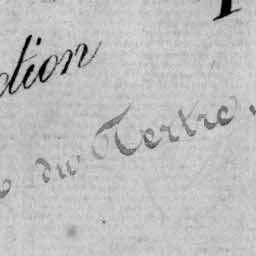 ction
du Tertre.